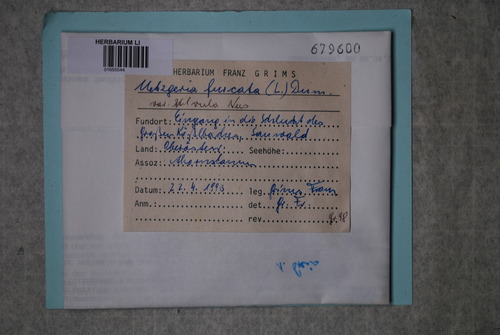 HERBARIUM LI
679600
HERBARIUM FRANZ GRIMS
Metzgeria furcata (L.) Dum.
var. ulvula Nees
Fundort: Eingang in die Schlucht des
Großen Kößlbaches, Sauwald
Land: Oberösterr. Seehöhe:
Assoz:
Datum: 22.4.1993 leg. Grims Franz
Anm.: det. Gr. Fr.
rev.